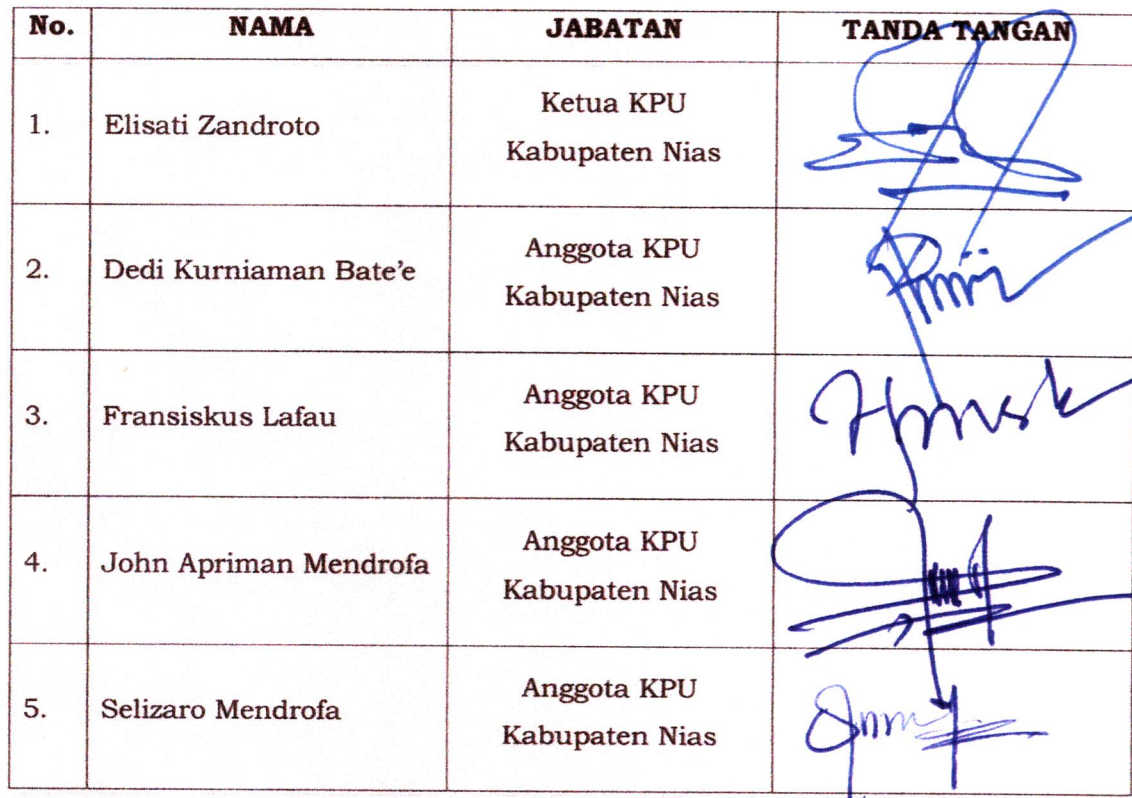 No. NAMA JABATAN TANDA TANGAN
1. Elisati Zandroto Ketua KPU
Kabupaten Nias
2. Dedi Kurniaman Bate'e Anggota KPU
Kabupaten Nias
3. Fransiskus Lafau Anggota KPU
Kabupaten Nias
4. John Apriman Mendrofa Anggota KPU
Kabupaten Nias
5. Selizaro Mendrofa Anggota KPU
Kabupaten Nias